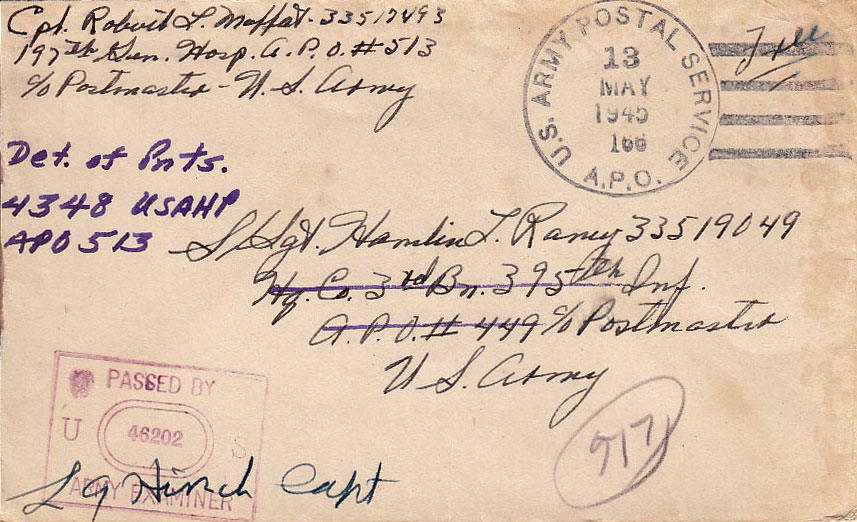 Cpl. Robert L. Moffat - 33517493
197th Gen. Hosp. A.P.O. # 513
c/o Postmaster - U.S. Army
U.S. ARMY POSTAL SERVICE
13
MAY
1945
166
A.P.O.
Free
Det. of Pnts.
4348 USAHP
APO 513
S/Sgt. Hamlin L. Raney 33519049
Hq. Co. 3rd Bn. 395th Inf.
A.P.O. # 449 c/o Postmaster
U S. Army
PASSED BY
U 46202 S
ARMY EXAMINER
Capt